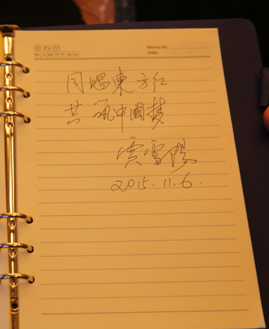 Memo No.
Date
同唱東方红
共筑中國梦
2015.11.6.